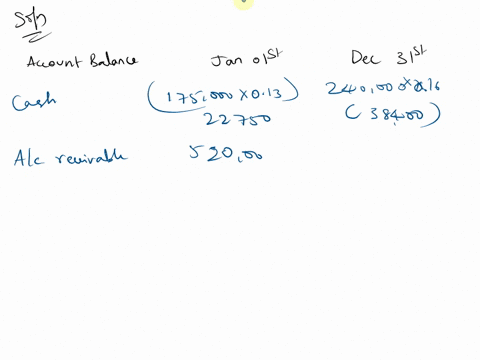 Soln
Account Balance Jan 01st Dec 31st
Cash (175,000 x 0.13) 240,000 x 0.16
22750 (38400)
A/c receivable 520,00